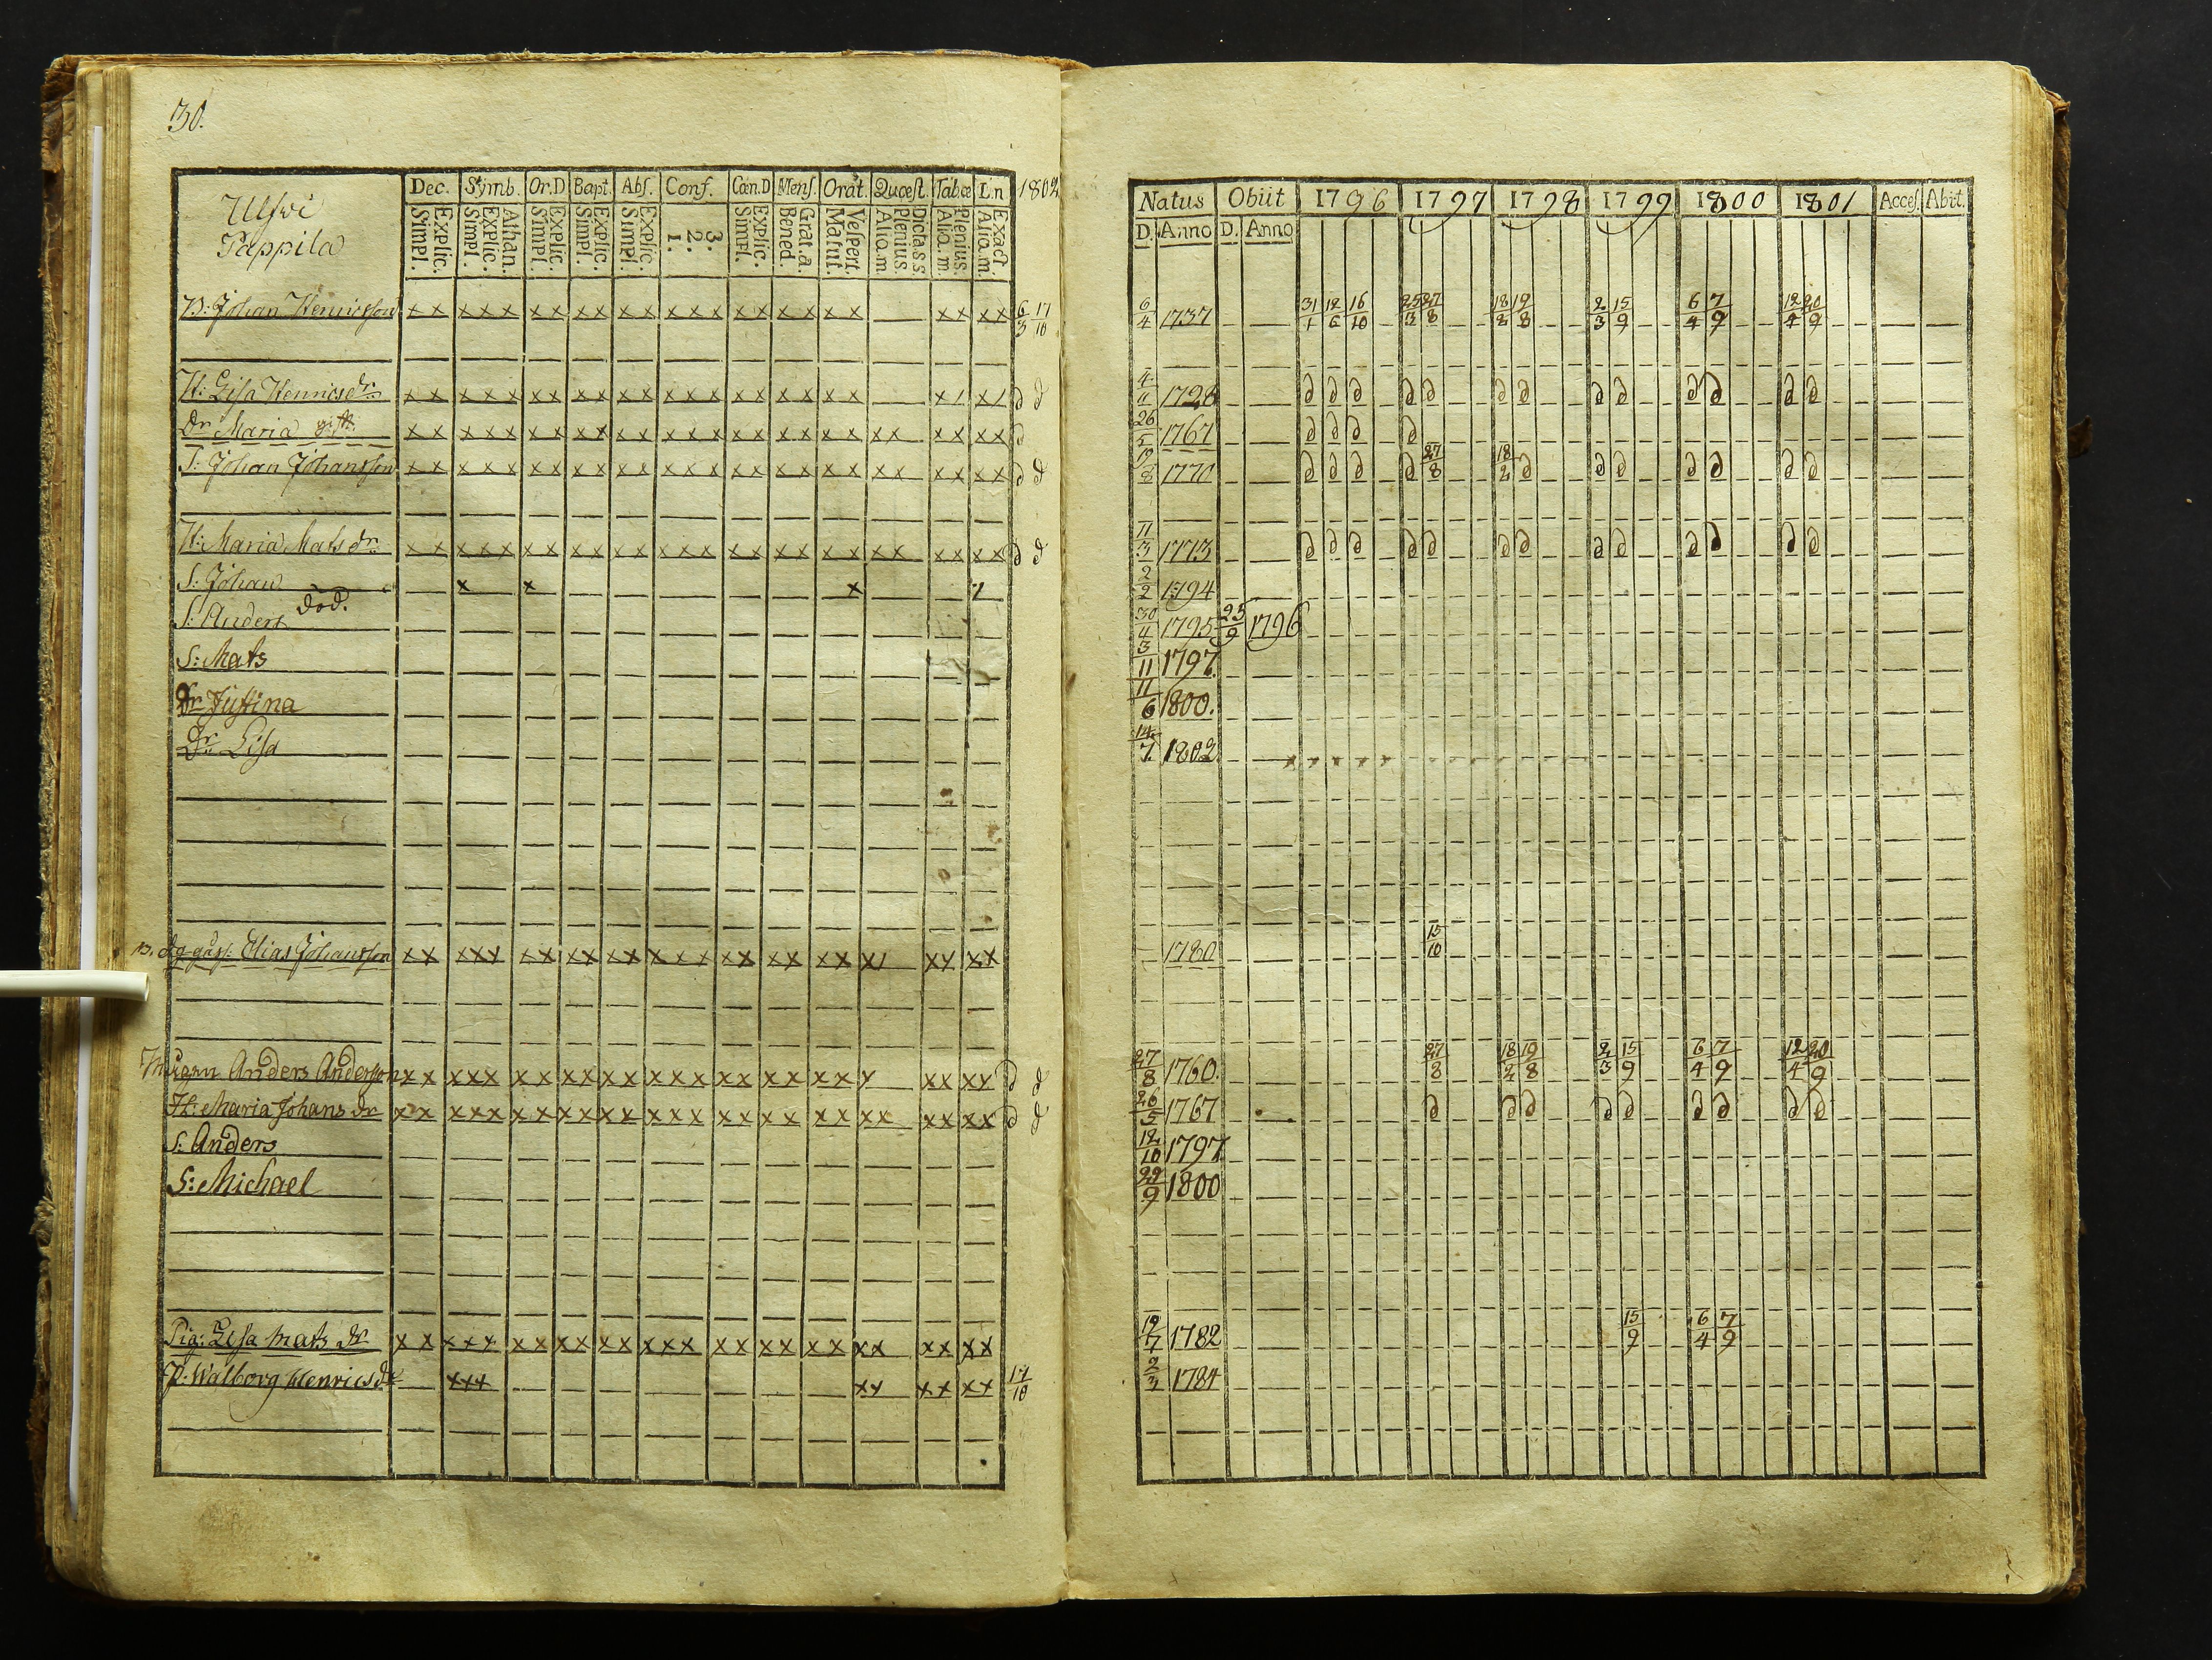 30.
Ulsvi
Pappila
Dec. Symb. Or.D Bapt. Abs. Conf. Cœn.D Mens. Orat. Quæst. Tabæ L.n 1802
Explic. Simpl. Athan. Explic. Simpl. Explic. Simpl. Explic. Simpl. Explic. Simpl. 3. 2. 1. Explic. Simpl. Grat.a. Bened. Vespert. Matut. Dicta s.s. Plenius. Alia.m. Plenius. Alia.m. Exact. Alia.m.
B: Johan Henricsson xx xxx xx xx xx xxx xx xx xx xx xx 6/3 17/10
H: Lisa Henricsdr xx xxx xx xx xx xxx xx xx xx x/ x/ d d
Dr Maria gift. xx xxx xx xx xx xxx xx xx xx xx xx xx d
S: Johan Johansson xx xxx xx xx xx xxx xx xx xx xx xx xx d d
H: Maria Matsdr xx xxx xx xx xx xxx xx xx xx xx xx xx d d
S: Johan x x x
S: Anders död.
S: Mats
dr Justina
Dr Lisa
Elias Johansson xx xxx xx xx xx xxx xx xx xx x/ xx xx
Anders Andersson xx xxx xx xx xx xxx xx xx xx x xx xx d d
H: Maria Johans dr xx xxx xx xx xx xxx xx xx xx xx xx xx d d
S: Anders
S: Michael
Pig: Lisa Mats dr xx xxx xx xx xx xxx xx xx xx xx xx xx
P: Walborg Henricsdr xxx xx xx xx 17/10
Natus Obiit 1796 1797 1798 1799 1800 1801 Acces. Abit.
D. Anno D. Anno
6/4 1737 31/1 12/6 16/10 25/3 27/8 18/2 19/8 2/3 15/9 6/4 7/9 12/4 20/9
4/11 1728 d d d d d d d d d d d d d
26/5 1767 d d d d
19/8 1770 d d d d 27/8 18/2 d d d d d d d
11/3 1773 d d d d d d d d d d d d d
2/2 1794
30/4 1795 25/9 1796
3/11 1797
11/6 1800.
14/7. 1802
1780 15/10
27/8 1760. 27/8 18/2 19/8 2/3 15/9 6/4 7/9 12/4 20/9
26/5 1767 d d d d d d d d d
12/10 1797
29/9 1800
19/7 1782 15/9 6/4 7/9
2/3 1784